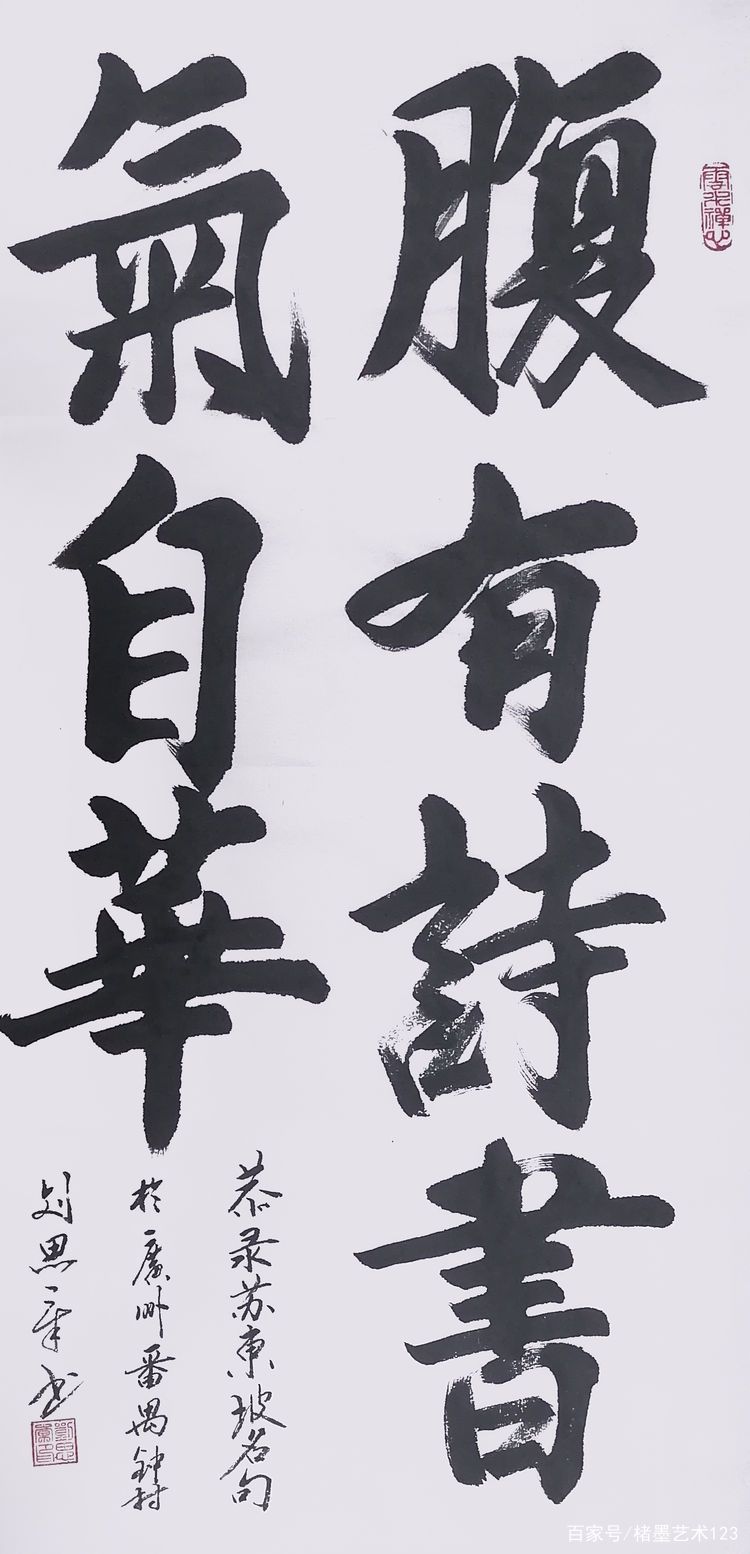 腹有詩書
氣自華
恭录苏東坡名句
於廣州番禺钟村
刘思章书
百家号/楮墨艺术123